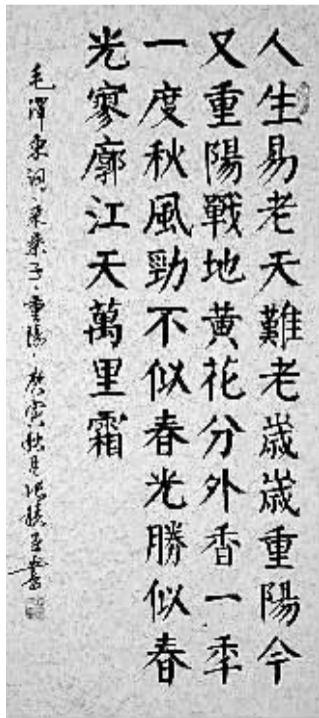 人生易老天難老歲歲重陽今
又重陽戰地黄花分外香一年
一度秋風勁不似春光勝似春
光寥廓江天萬里霜
毛澤東詞·采桑子·重陽·庚寅秋月